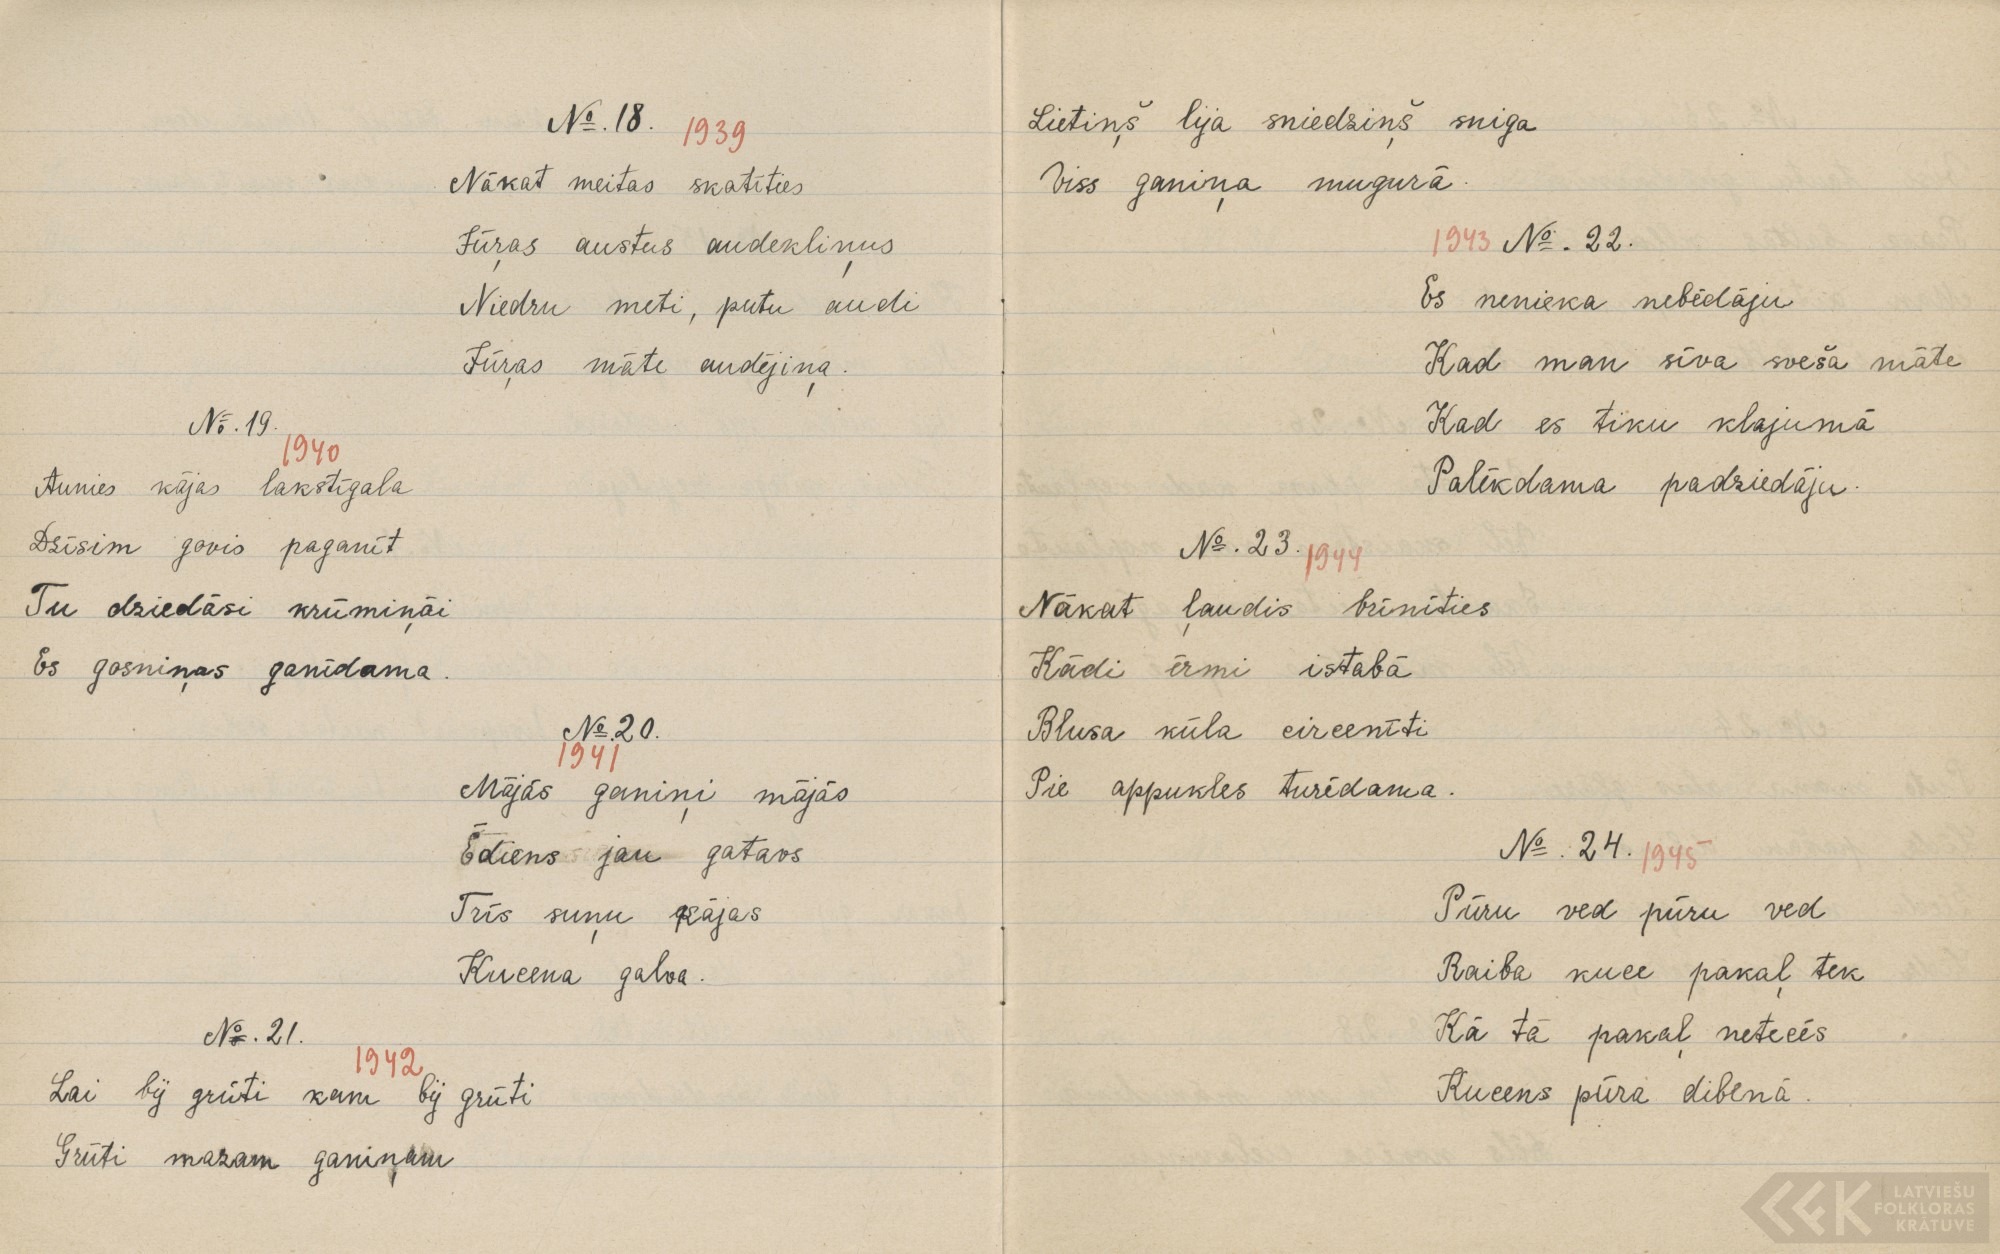 №. 18. 1939
Nākat meitas skatīties
Jūŗas austus audekliņus
Niedru meti, putu audi
Jūŗas māte audējiņa.
№. 19.
1940
Aunies kājas lakstīgala
Dzīsim govis paganīt
Tu dziedāsi krūmiņāi
Es gosniņas ganīdama.
№. 20.
1941
Mājās ganiņi mājās
Ēdiens jau gatavs
Trīs suņu kājas
Kucena galva.
№. 21.
1942
Lai bij grūti kam bij grūti
Grūti mazam ganiņam
Lietiņš lija sniedziņš sniga
Viss ganiņa mugurā.
1943 №. 22.
Es nenieka nebēdāju
Kad man sīva sveša māte
Kad es tiku klajumā
Palēkdama padziedāju.
№. 23. 1944
Nākat ļaudis brīnīties
Kādi ērmi istabā
Blusa kūla circenīti
Pie appukles turēdama.
№. 24. 1945
Pūru ved pūru ved
Raiba kuce pakaļ tek
Kā tā pakaļ netecēs
Kucens pūra dibenā.
LATVIEŠU
FOLKLORAS
KRĀTUVE